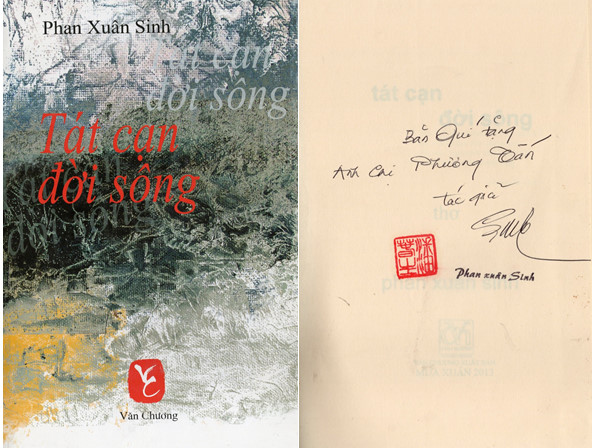 Phan Xuân Sinh
tát cạn
đời sông
Tát cạn
đời sông
tát cạn
đời sông
Văn Chương
tát cạn
đời sông
Bản Quí tặng
Anh Chị Phương Tấn
tác giả
thơ
Phan Xuân Sinh
phan xuân sinh
MÙA XUÂN 2011